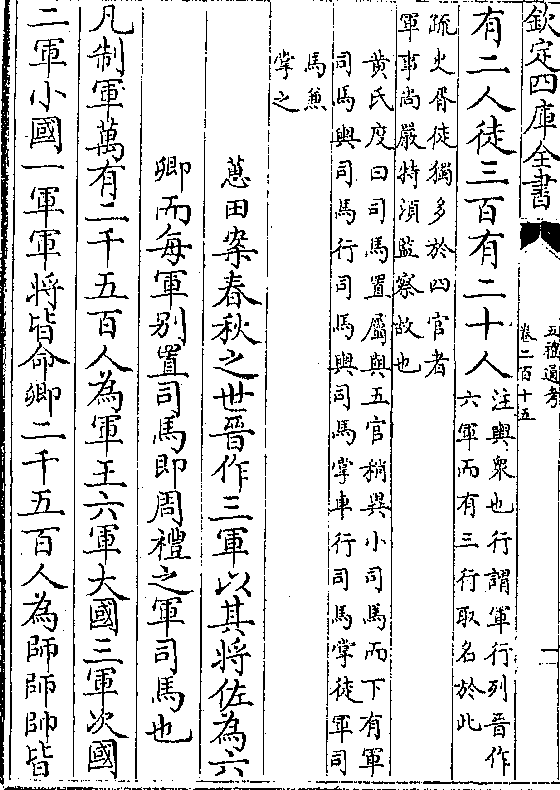 欽定四庫全書
五禮通考
卷二百十五
一
有二人徒三百有二十人
注輿衆也行謂軍行列晉作
六軍而有三行取名於此
疏史胥徒獨多於四官者
軍事尚嚴特湏監察故也
黄氏度曰司馬置屬與五官稍異小司馬而下有軍
司馬輿司馬行司馬輿司馬掌車行司馬掌徒軍司
馬兼
掌之
蕙田案春秋之世晉作三軍以其將佐為六
卿而每軍别置司馬即周禮之軍司馬也
凡制軍萬有二千五百人為軍王六軍大國三軍次國
二軍小國一軍軍將皆命卿二千五百人為師師帥皆